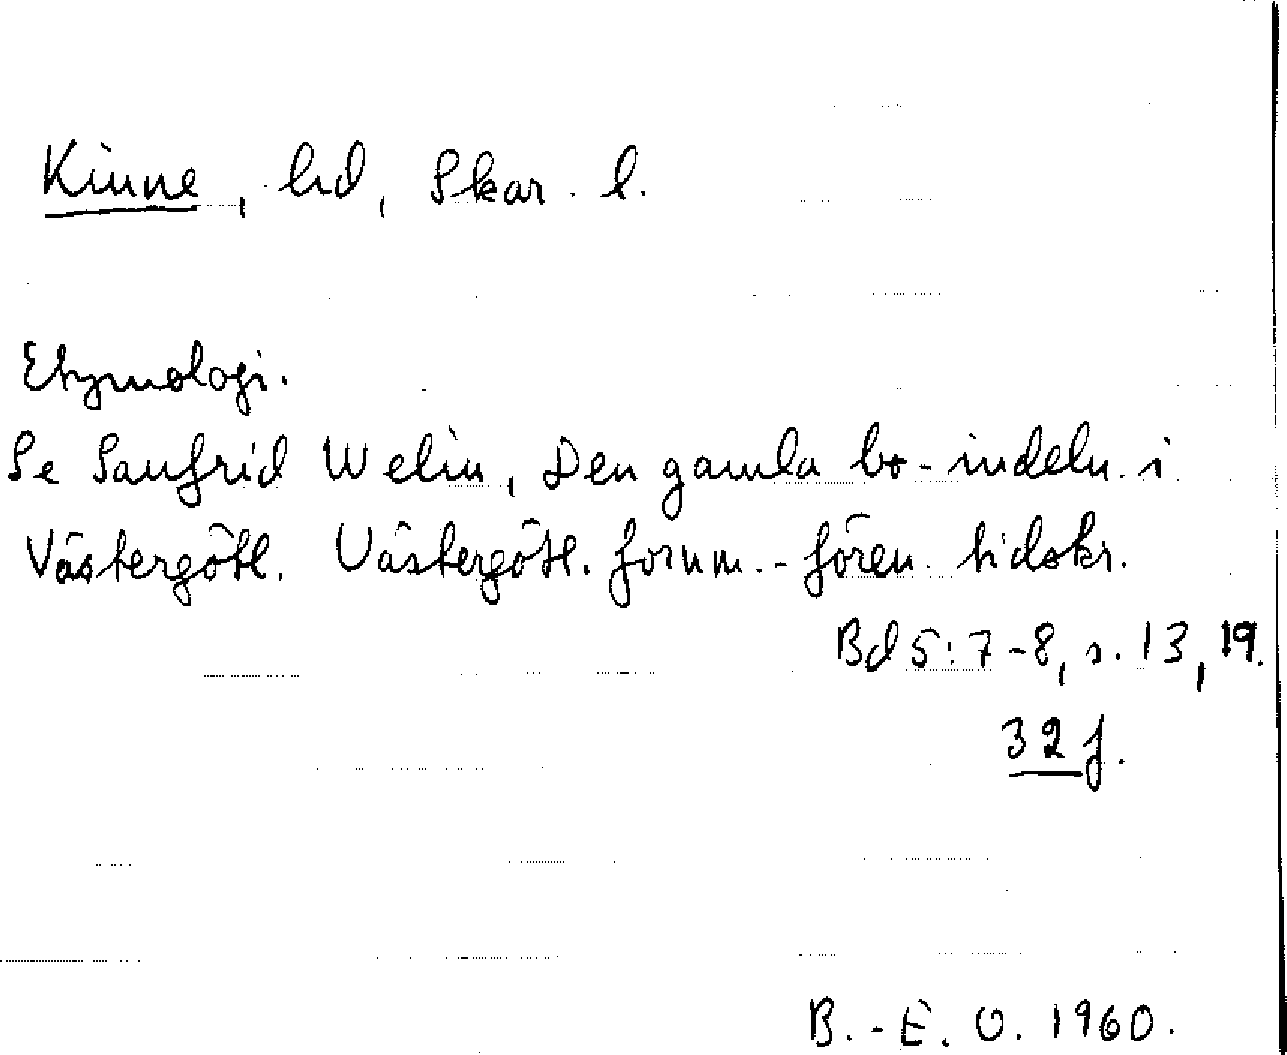 Kinne, hd, Skar. l.
Etymologi.
Se Sanfrid Welin, Den gamla bo-indeln. i
Västergötl. Västergötl. fornm.-fören. tidskr.
Bd 5:7-8, s. 13, 19.
32 f.
B.-E. O. 1960.